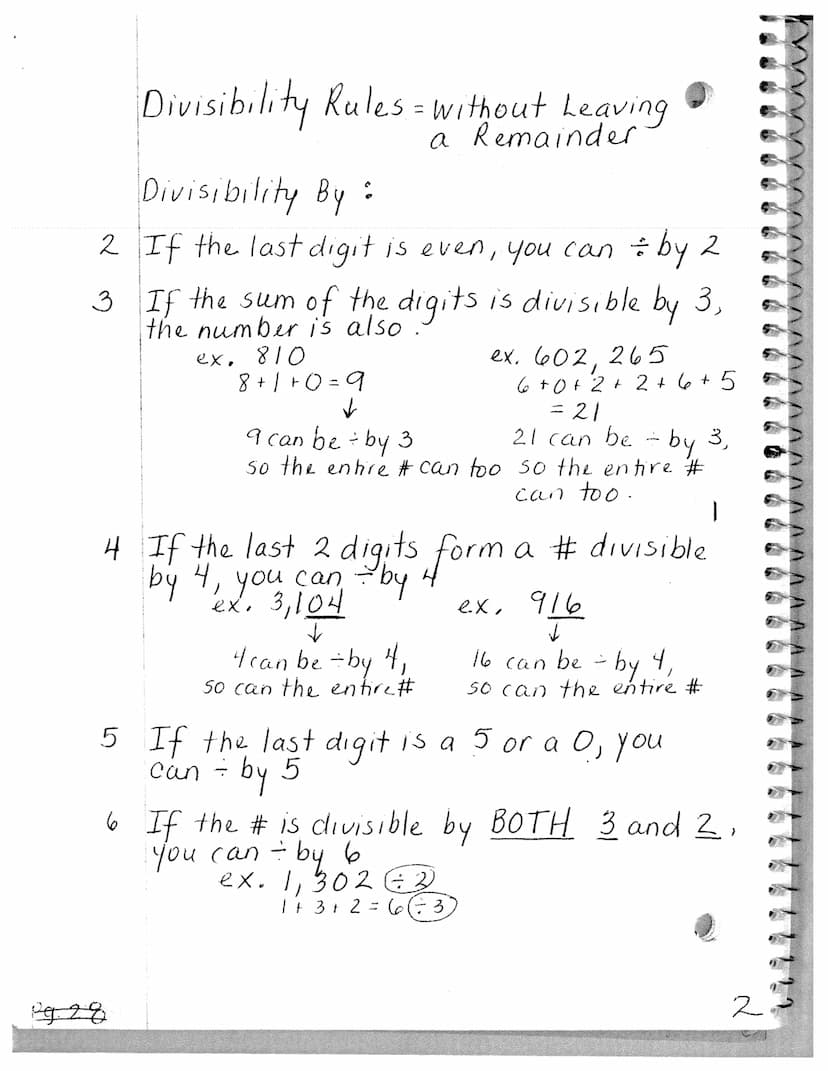 Divisibility Rules = without Leaving
a Remainder
Divisibility By :
2 If the last digit is even, you can ÷ by 2
3 If the sum of the digits is divisible by 3,
the number is also.
ex. 810 ex. 602, 265
8+1+0=9 6+0+2+2+6+5
↓ = 21
9 can be ÷ by 3 21 can be ÷ by 3,
so the entire # can too so the entire #
can too.
4 If the last 2 digits form a # divisible
by 4, you can ÷ by 4
ex. 3,104 ex. 916
↓ ↓
4 can be ÷ by 4, 16 can be ÷ by 4,
so can the entire # so can the entire #
5 If the last digit is a 5 or a 0, you
can ÷ by 5
6 If the # is divisible by BOTH 3 and 2,
you can ÷ by 6
ex. 1,302 ÷2
1+3+2=6 ÷3
Pg. 28 2